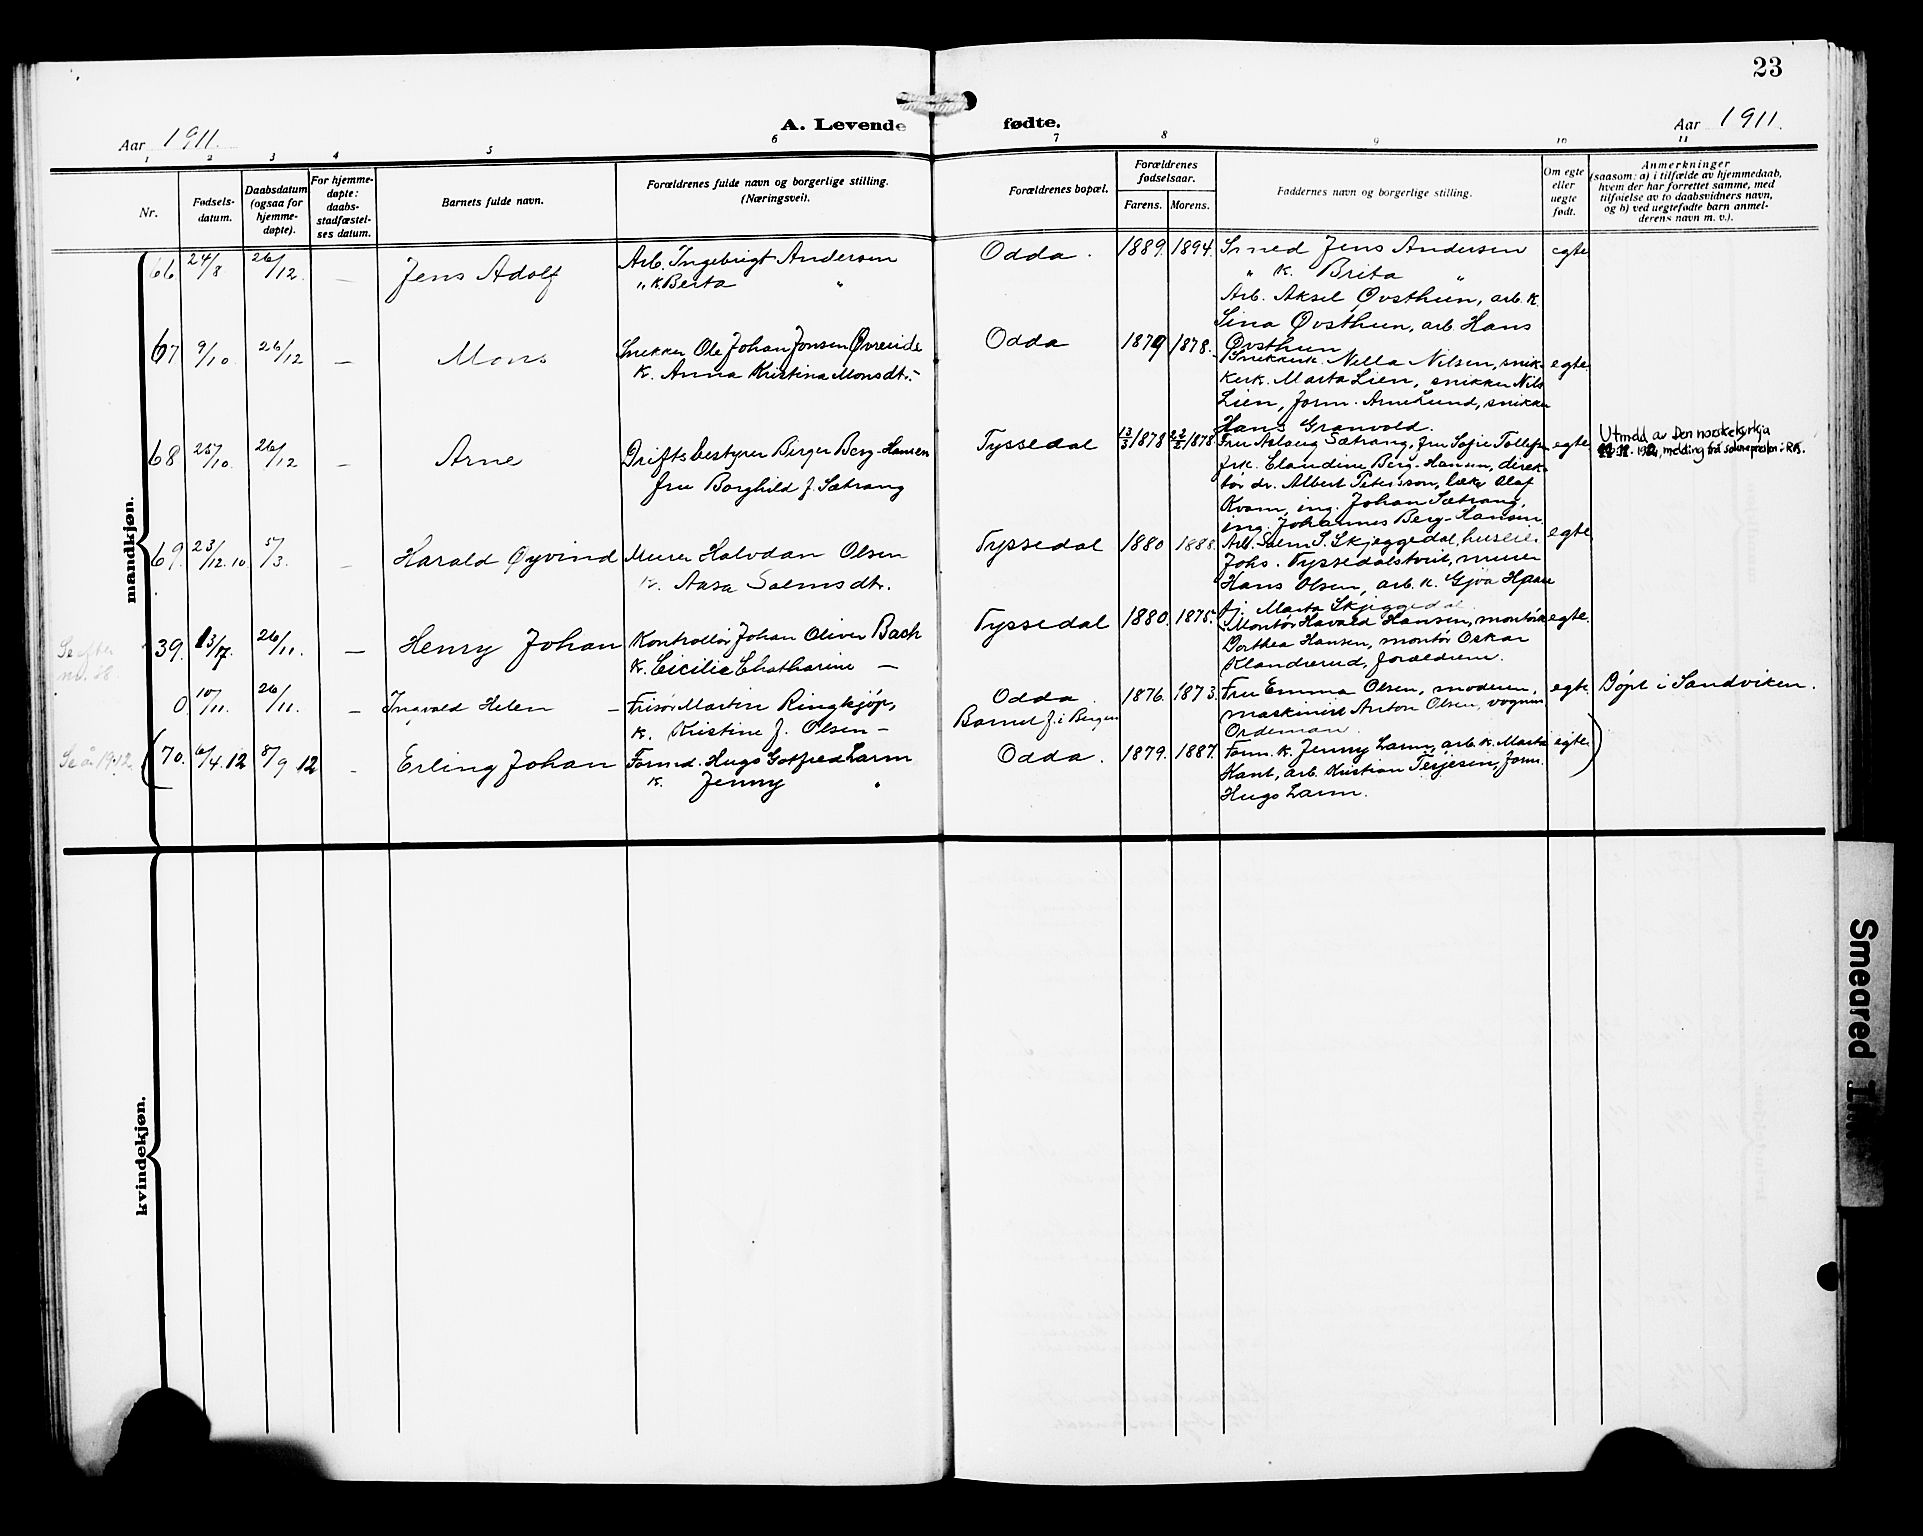 23
A. Levende fødte.
Aar 1911.
Aar 1911.
1 2 3 4 5 6 7 8 9 10 11
Nr.
Fødsels-
datum.
Daabsdatum
(ogsaa for
hjemme-
døpte).
For hjemme-
døpte:
daabs-
stadfæstel-
ses datum.
Barnets fulde navn.
Forældrenes fulde navn og borgerlige stilling.
(Næringsvei).
Forældrenes bopæl.
Forældrenes
fødselsaar.
Farens. Morens.
Faddernes navn og borgerlige stilling.
Om egte
eller
uegte
født.
Anmerkninger
(saasom: a) i tilfælde av hjemmedaab,
hvem der har forrettet samme, med
tilføielse av to daabsvidners navn,
og b) ved uegtefødte barn anmel-
derens navn m. v.).
mandkjøn.
66 24/8 26/12 — Jens Adolf
Arb. Ingebrigt Andersen
" k. Berta "
Odda. 1889. 1894.
Smed Jens Andersen
" k. Brita "
Arb. Aksel Øvsthun, arb. k.
Sina Øvsthun, arb. Hans
Øvsthun
egte
67 9/10. 26/12 — Mons
Snekker Ole Johan Jonsen Øvreeide
k. Anna Kristina Monsdt.
Odda 1879 1878.
Snekkerk. Nilla Nilsen, snik-
kerk. Marta Lien, snikker Nils
Lien, form. Arne Lund, snikker
Hans Granvold.
egte.
68 25/10. 26/12 — Arne
Driftsbestyrer Birger Berg-Hansen
fru Borghild f. Sætrang
Tyssedal 13/3 1878 1878
Fru Aslaug Sætrang, fru Sofie Tollefsen
frk. Claudine Berg-Hansen, direk-
tør dr. Albert Petersson, læke Olaf
Kvam, ing. Johan Sætrang,
ing. Johannes Berg-Hansen.
egte
Utmeld av Den norske kyrkja
melding frå soknepresten i
69. 23/12.10 5/3. — Harald Øyvind
Murer Halvdan Olsen
k. Aasa Salmsdt.
Tyssedal 1880 1888.
Arb. Salm S. Skjeggedal, huseier
Johs. Tyssedalstveit, murer
Hans Olsen, arb. k. Gjøa
Marta Skjeggedal.
egte
Se efter
no. 38.
39. 13/7. 26/11. — Henry Johan
Kontrollør Johan Oliver Bach
k. Cicilie Chatharine —
Tyssedal 1880. 1875.
Montør Havald Hansen, montørk.
Dorthea Hansen, montør Oskar
Klandrerud, forældrene.
egte.
0. 10/11. 26/11. — Ingvald Helen —
Frisør Martin Ringkjøp,
k. Kristine f. Olsen —
Odda.
Barnet f. i Bergen
1876. 1873.
Fru Emma Olsen, moderen,
maskinist Anton Olsen, vognm.
Ordeman.
egte
Døpt i Sandviken.
Se år 1912.
(70. 6/4.12 8/9 12 — Erling Johan
Formd. Hugo Gotfred Larm
k. Jenny "
Odda. 1879. 1887.
Form. k. Jenny Larm, arb. k. Marta
Hant, arb. Kristian Terjesen, form.
Hugo Larm.
egte)
kvindekjøn.
Smeared